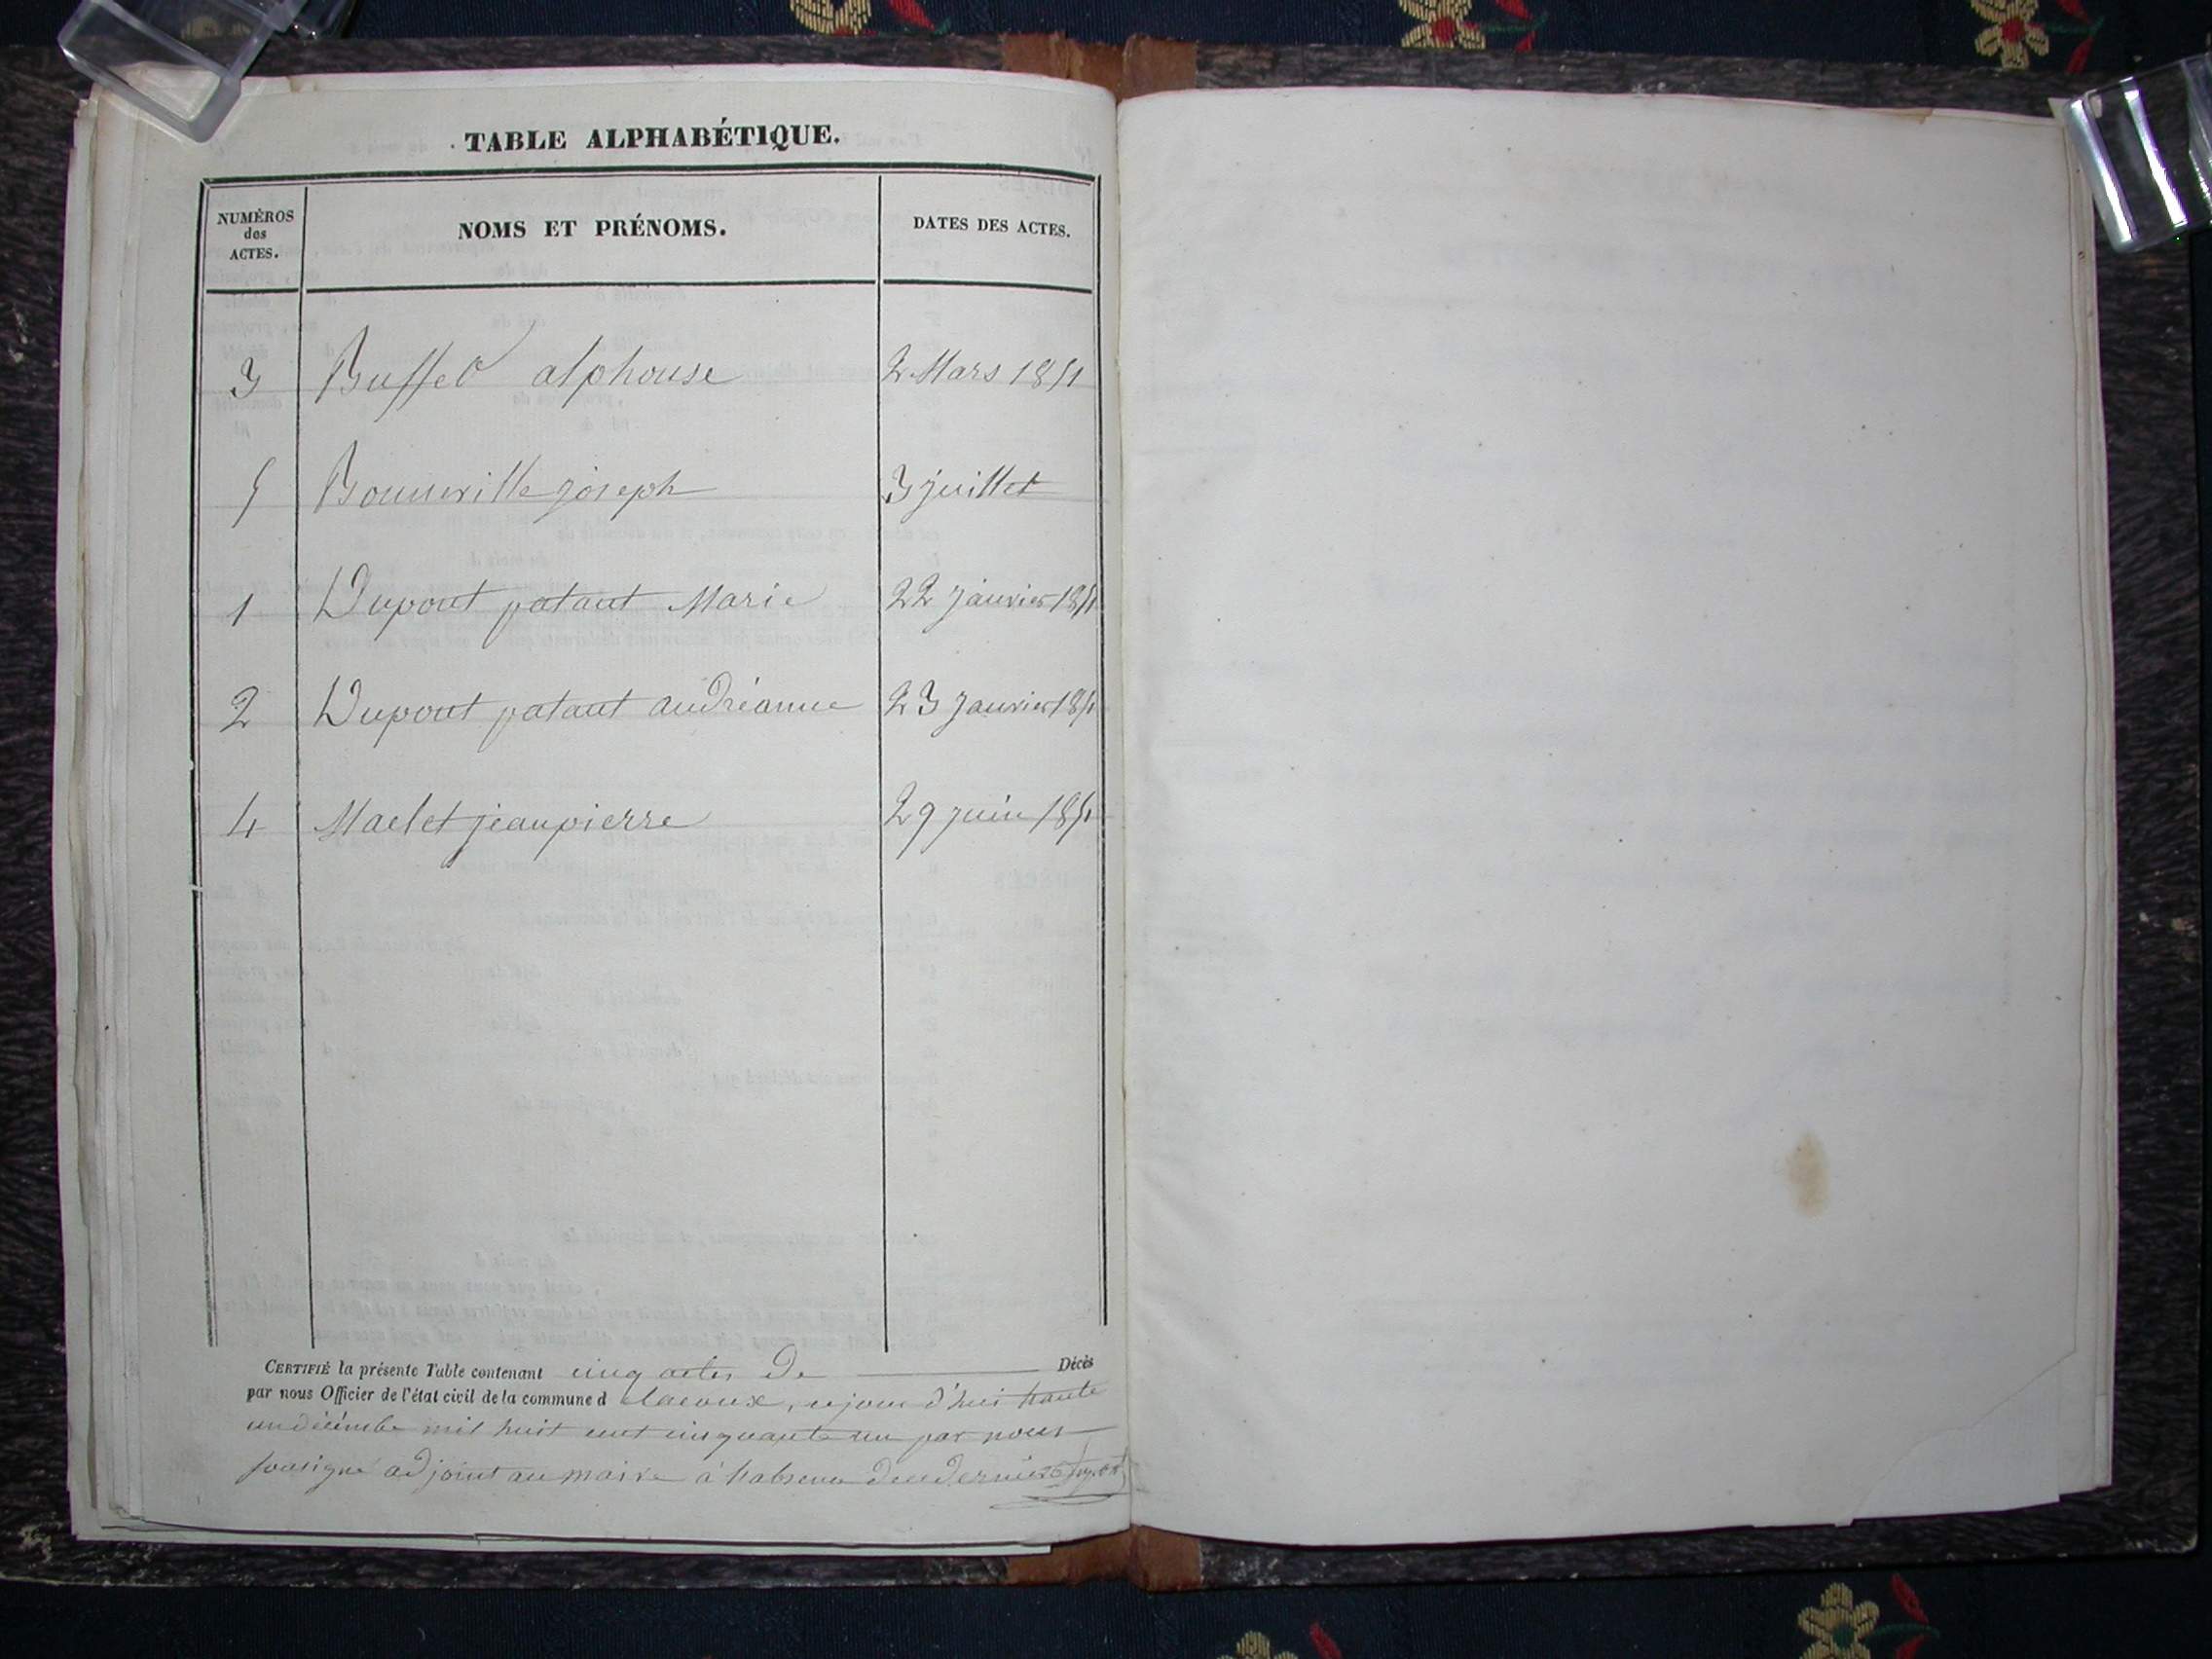 TABLE ALPHABÉTIQUE.
NUMÉROS des ACTES. NOMS ET PRÉNOMS. DATES DES ACTES.
3 Buffet alphonse 2 Mars 1851
5 Bonneville joseph 3 juillet
1 Dupont patant Marie 22 janvier 1851
2 Dupont patant andréanne 23 janvier 1851
4 Maclet jeanpierre 29 juin 1851
CERTIFIÉ la présente Table contenant cinq actes de Décès
par nous Officier de l'état civil de la commune d Lacoux, ce jour d'hui trante
un décembe mil huit cent cinquante un par nous
sousigné adjoint au maire à l'absence de ce dernier